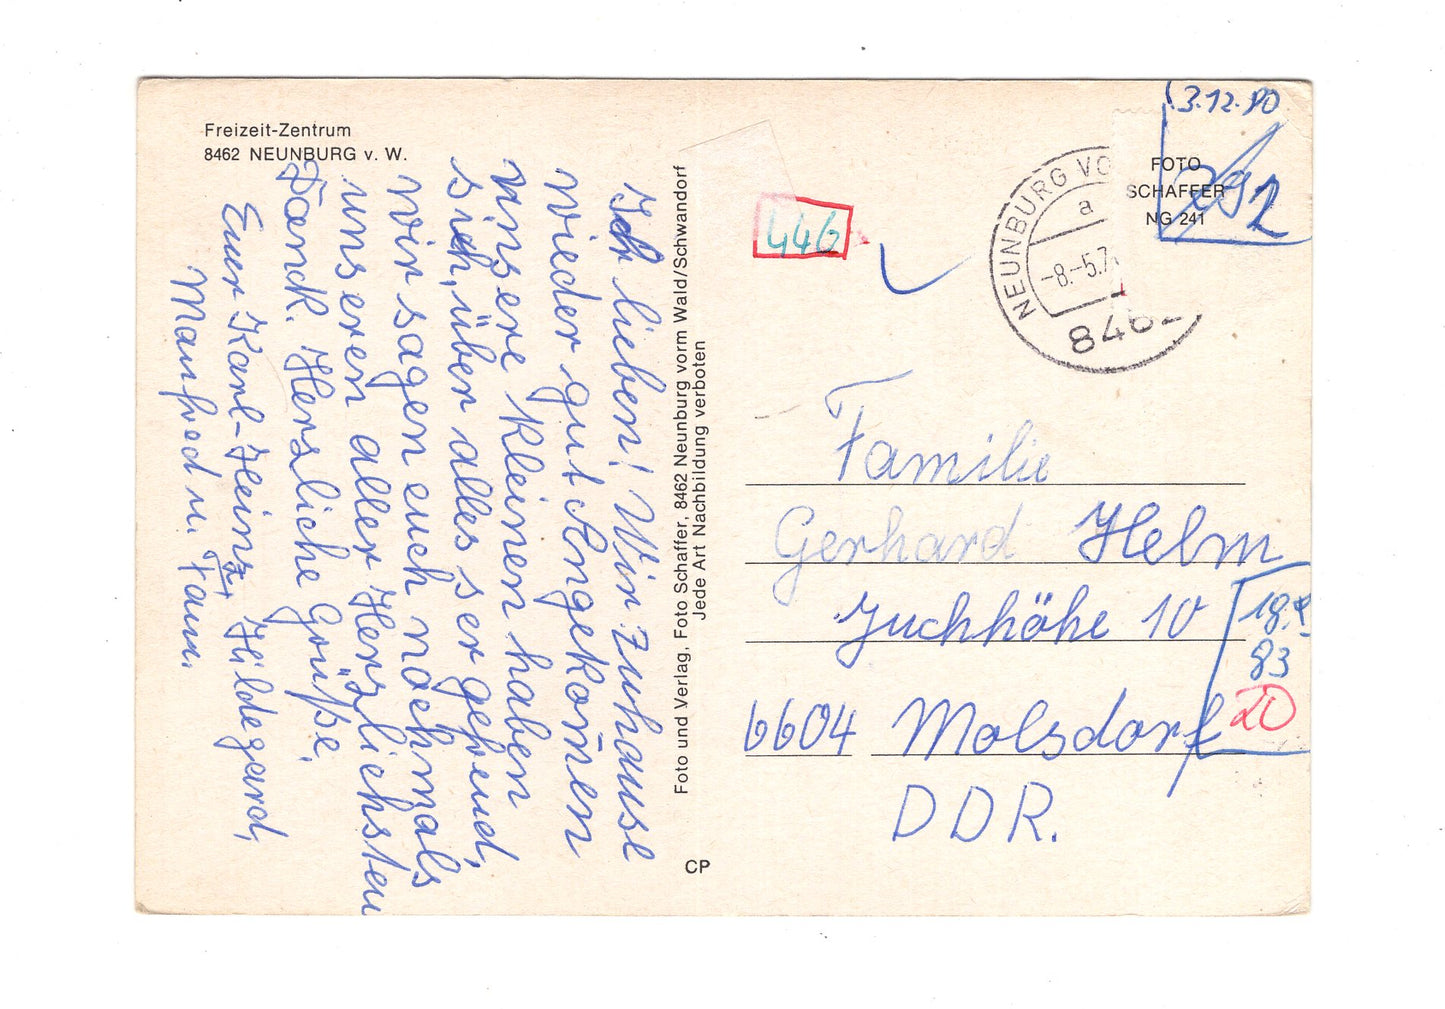 Freizeit-Zentrum
8462 NEUNBURG v. W.
Ihr lieben! Wir zuhause
wieder gut Angekom̄en
unsere kleinen haben
sich, über alles ser gefreud,
wir sagen euch nochmals
unseren aller Herzlichsten
Danck. Herzliche Grüße,
Euer Karl-Heinz, Hildegard,
Manfred u. Fam.
Foto und Verlag, Foto Schaffer, 8462 Neunburg vorm Wald/Schwandorf
Jede Art Nachbildung verboten
CP
446
NEUNBURG VO
a
-8.-5.7
846
3.12.80
FOTO
SCHAFFER
NG 241
Familie
Gerhard Helm
Juchhöhe 10
6604 Molsdorf
DDR.
83
20